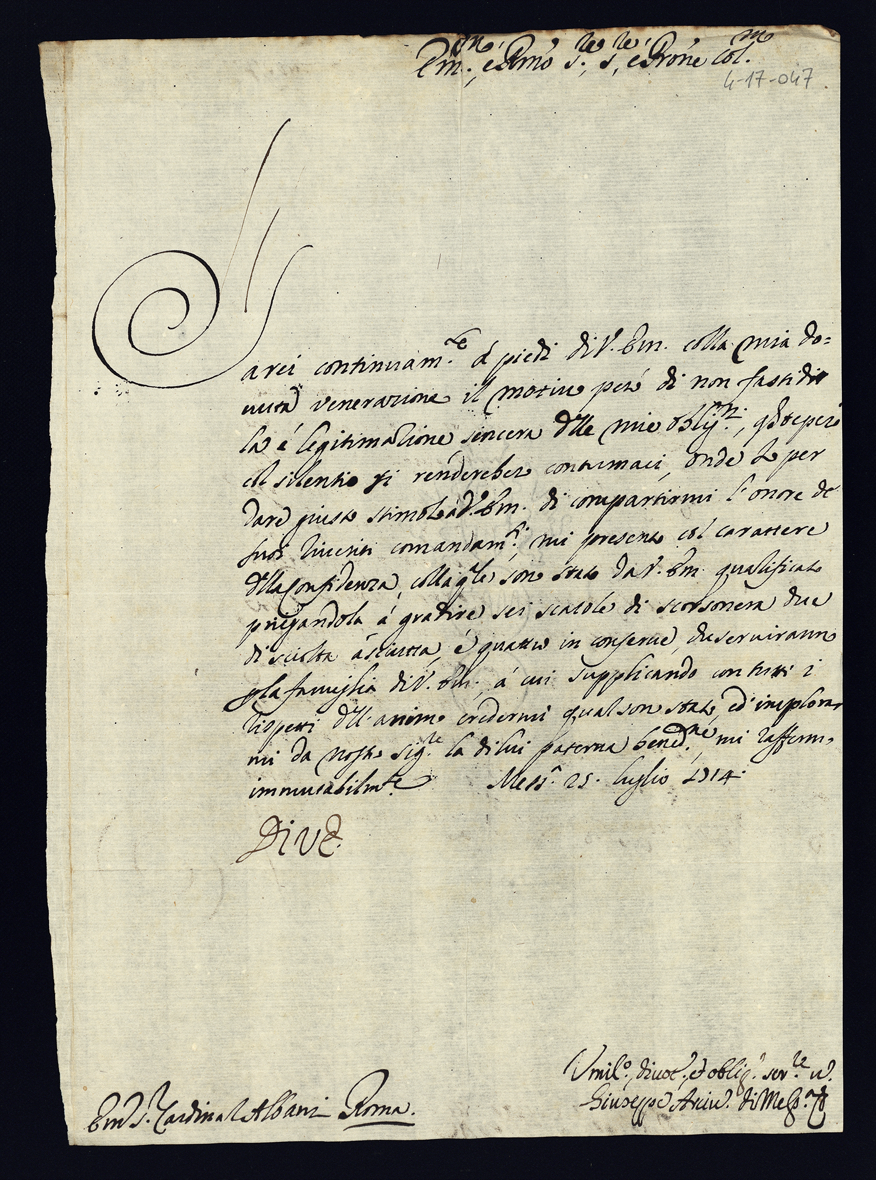 Em.mo, e Rmo S.re, S.re, e Prone Col.mo
4-17-047
Sarei continuam.te à piedi di V. Em. colla mia do=
vuta venerazione il motivo però di non fastidir
la è legitimazione sincera dlle mie oblig.ni,
il silentio si renderebbe contumaci, onde per
dare giusto stimolo à V. Em. di compartirmi l'onore de
suoi riveriti comandam.ti, mi presento col carattere
dlla Confidenza, colla qle son stato da V. Em. qualificato
priegandola à gradire sei scatole di scorsonera due
di sciolta asciutta, è quattro in conserve, che serviranno
p la famiglia di V. Em. à cui supplicando con tutti i
rispetti dll'animo credermi qual son stato, ed implorar
mi da nostro Sig.re la di lui paterna bened.ne, mi raffermo
immutabilm.te Mess.a 25. luglio 1714.
Di V E.
Umil.o, divot.o, et oblig.o ser.re v.
Giuseppe Arciv.o di Mess.a
Em.o S.r Cardinal Albani Roma.